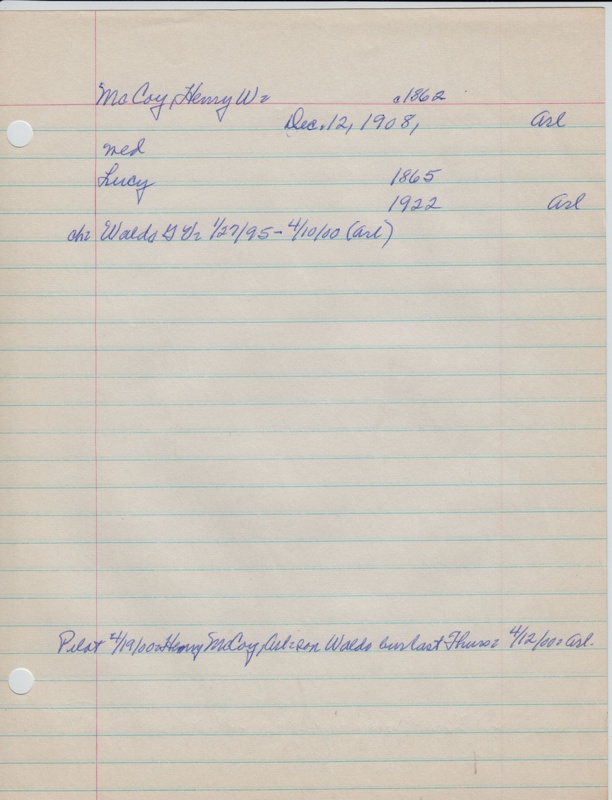 McCoy, Henry W= c1862
Dec. 12, 1908, Arl
med
Lucy 1865
1922 Arl
ch= Waldo G W= 1/27/95 - 4/10/00 (Arl)
Pilot 4/19/00= Henry McCoy, Arl= son Waldo bur last Thurs= 4/12/00= Arl.